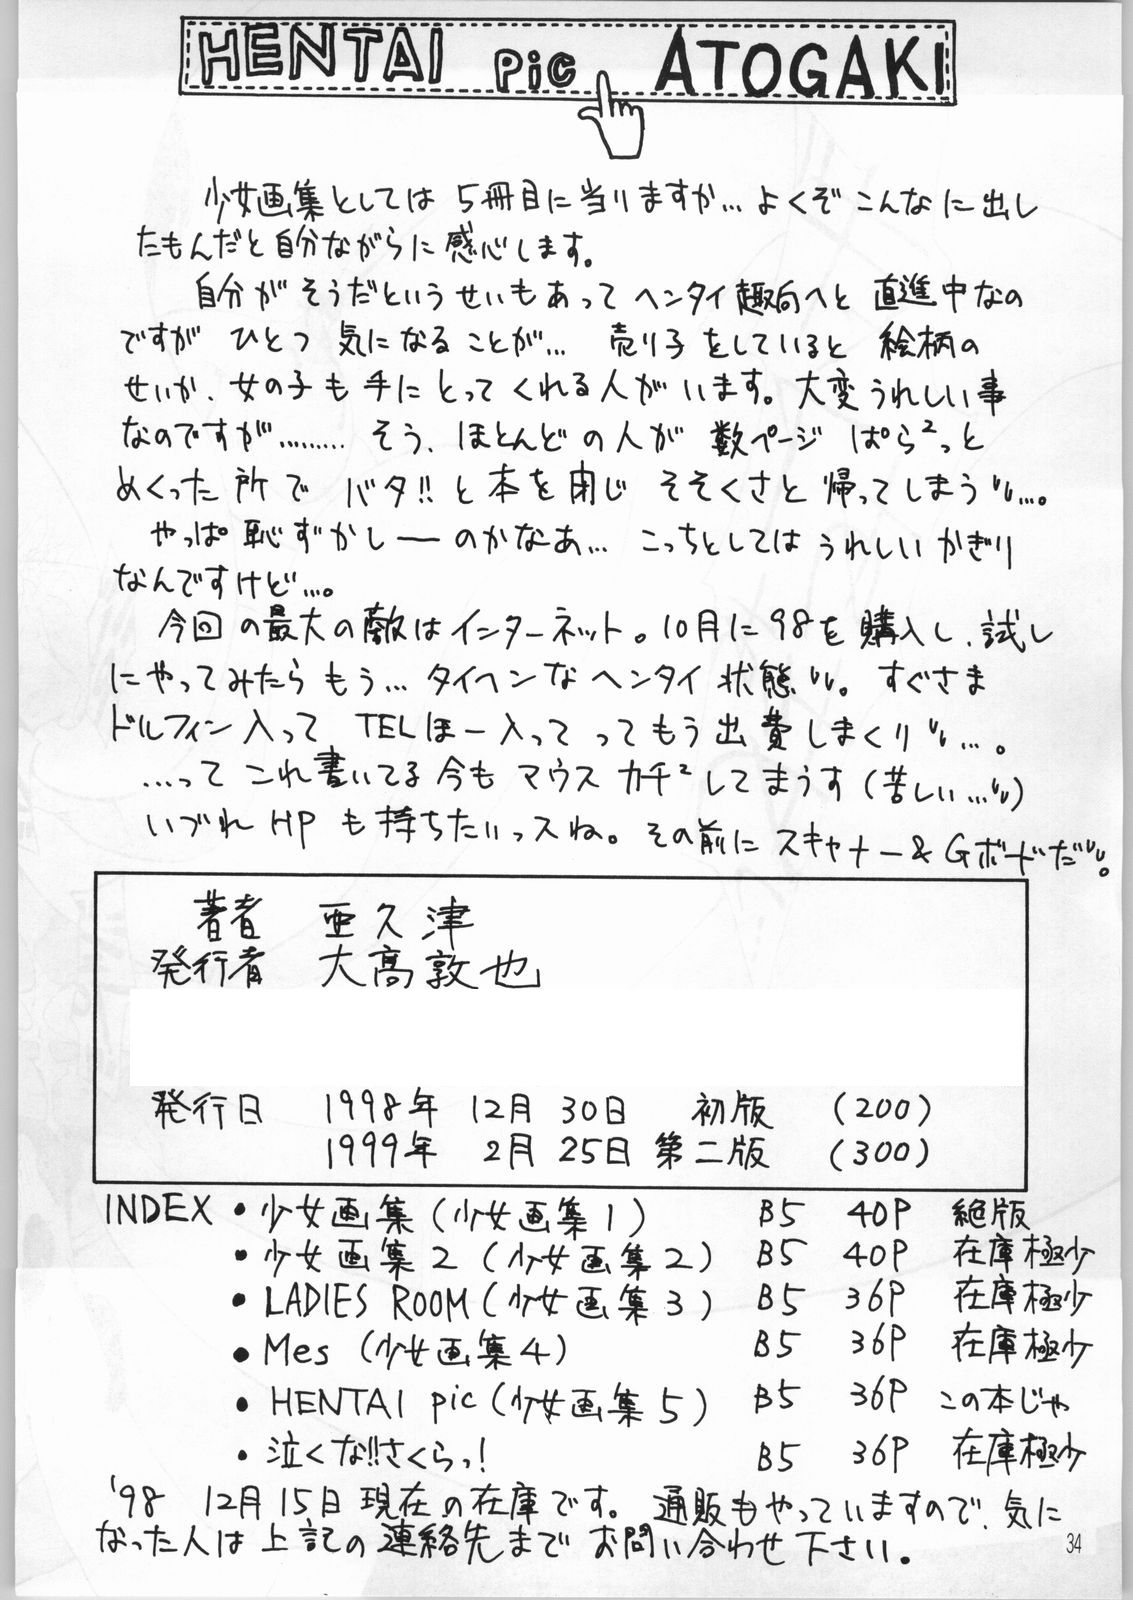 HENTAI Pic ATOGAKI
少女画集としては5冊目に当りますか…よくぞこんなに出し
たもんだと自分ながらに感心します。
自分がそうだというせいもあってヘンタイ趣向へと直進中なの
ですが ひとつ気になることが… 売り子をしていると絵柄の
せいか、女の子も手にとってくれる人がいます。大変うれしい事
なのですが……… そう、ほとんどの人が数ページ ぱら²っと
めくった所でバタ!!と本を閉じ そそくさと帰ってしまう〃…。
やっぱ恥ずかしーのかなあ… こっちとしてはうれしいかぎり
なんですけど…。
今回の最大の敵はインターネット。10月に98を購入し、試し
にやってみたらもう… タイヘンなヘンタイ状態〃。すぐさま
ドルフィン入って TELほー入ってってもう出費しまくり〃…。
…ってこれ書いてる今もマウスカチ²してまうす(苦しい…〃)
いづれHPも持ちたいっスね。その前にスキャナー&Gボードだ〃。
著者 亜久津
発行者 大高敦也
発行日 1998年 12月 30日 初版 (200)
1999年 2月 25日 第二版 (300)
INDEX ・少女画集(少女画集1) B5 40P 絶版
・少女画集2(少女画集2) B5 40P 在庫極少
・LADIES ROOM(少女画集3) B5 36P 在庫極少
・Mes(少女画集4) B5 36P 在庫極少
・HENTAI pic(少女画集5) B5 36P この本じゃ
・泣くな!!さくらっ! B5 36P 在庫極少
'98 12月15日現在の在庫です。通販もやっていますので、気に
なった人は上記の連絡先までお問い合わせ下さい。
34